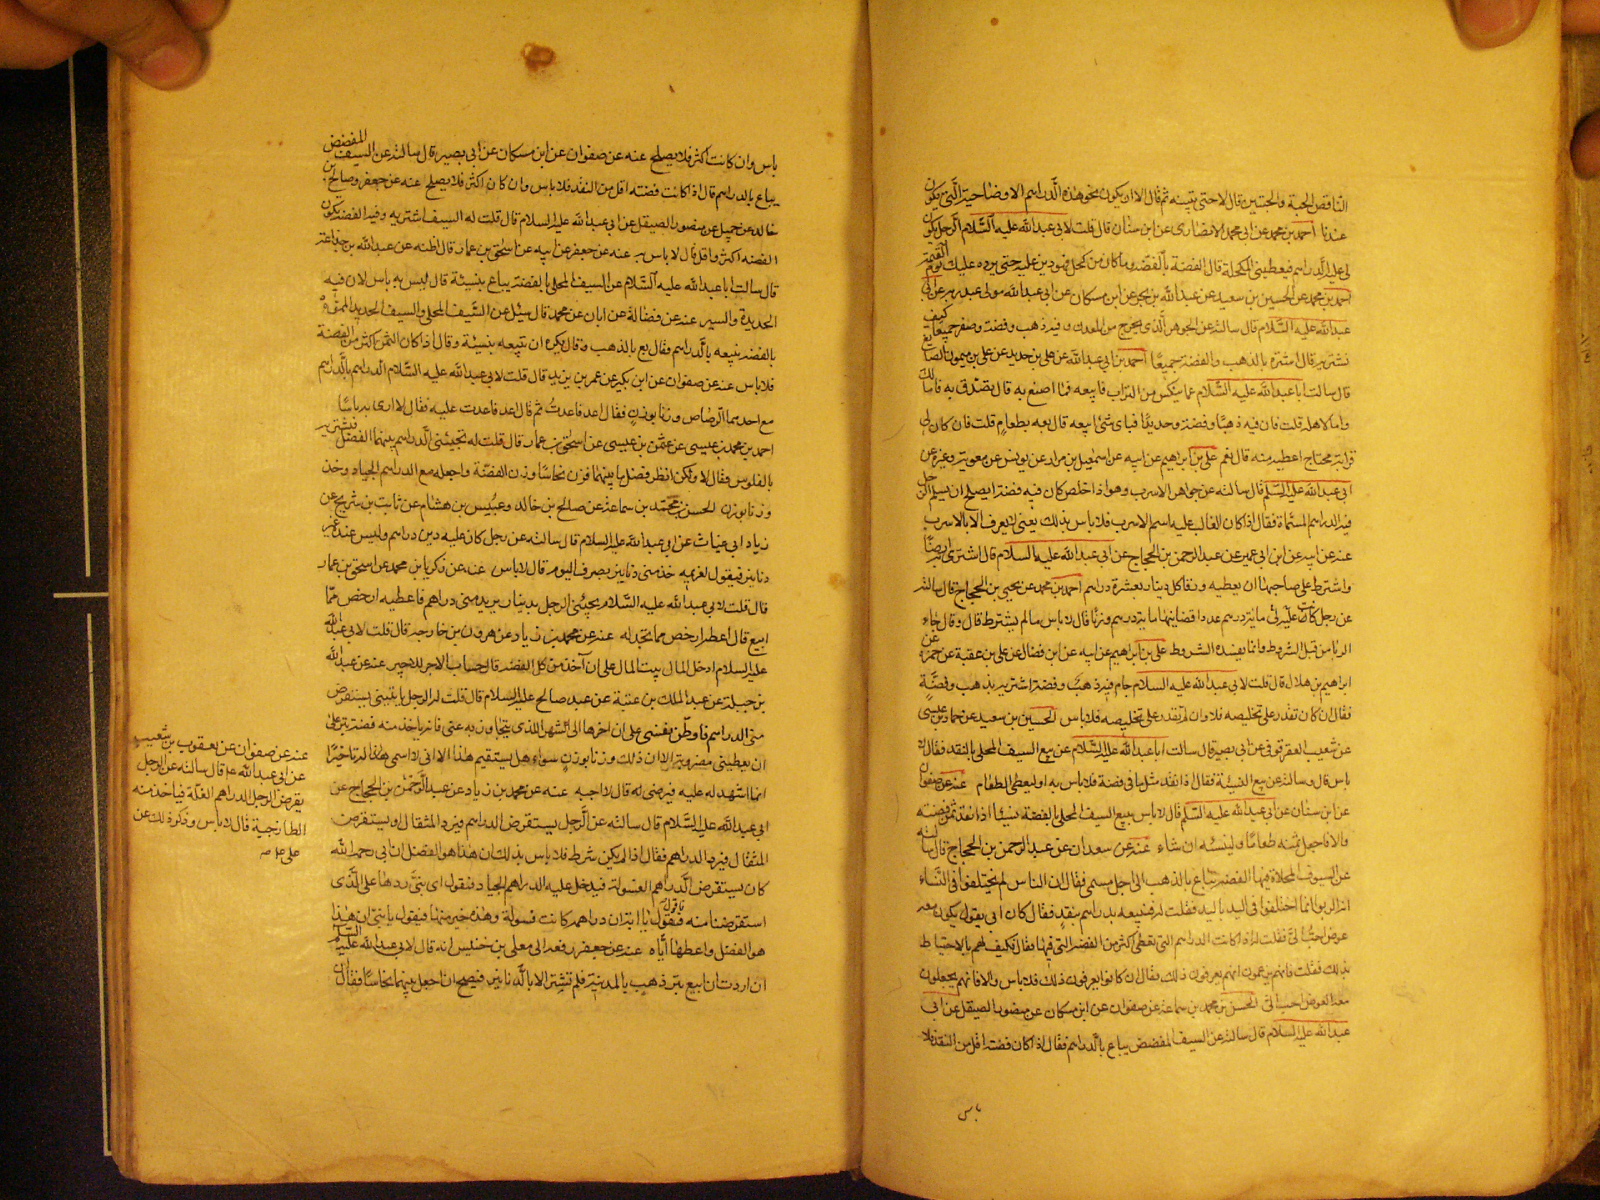 الناقص الحبة والحبتين قال لا حتى تبينه ثم قال الا ان يكون نحو هذه الدراهم الاوضاحية التي يكون
عندنا احمد بن محمد عن ابي محمد الانصاري عن ابن سنان قال قلت لابي عبد الله عليه السلام الرجل يكون
لي عليه الدراهم فيعطيني المكحلة قال الفضة بالفضة وما كان من كحل فهو دين عليه حتى يرده عليك يوم القيمة
احمد بن محمد عن الحسين بن سعيد عن عبد الله بن بحر عن ابن مسكان عن ابي عبد الله مولى عبد ربه عن ابي
عبد الله عليه السلام قال سالته عن الجوهر الذي يخرج من المعدن وفيه ذهب وفضة وصفر جميعا كيف
نشتريه قال اشتره بالذهب والفضة جميعا احمد بن ابي عبد الله عن علي بن حديد عن علي بن ميمون الصائغ
قال سالت ابا عبد الله عليه السلام عما يكنس من التراب فابيعه فما اصنع به قال تصدق به فاما لك
واما لاهله قلت فان فيه ذهبا وفضة وحديدا فباي شئ ابيعه قال بعه بطعام قلت فان كان لي
قرابة محتاج اعطيه منه قال نعم علي بن ابراهيم عن ابيه عن اسمعيل بن مرار عن يونس عن معوية وغيره عن
ابي عبد الله عليه السلم قال سالته عن جواهر الاسرب وهو اذا خلص كان فيه فضة ايصلح ان يسلم الرجل
فيه الدراهم المسماة فقال اذا كان الغالب عليه اسم الاسرب فلا باس بذلك يعني لا يعرف الا بالاسرب
عنه عن ابيه عن ابن ابي عمير عن عبد الرحمن بن الحجاج عن ابي عبد الله عليه السلام قال اشترى ابي ارضا
واشترط على صاحبها ان يعطيه ورقا كل دينار بعشرة دراهم احمد بن محمد عن يحيى بن الحجاج قال سالته
عن رجل كانت لي عليه مائة درهم عددا قضانيها مائة درهم وزنا قال لا باس ما لم يشترط قال وقال جاء
الربا من قبل الشروط وانما يفسده الشروط علي بن ابراهيم عن ابيه عن ابن فضال عن علي بن عقبة عن حمزة عن
ابراهيم بن هلال قال قلت لابي عبد الله عليه السلام جام فيه ذهب وفضة اشتريه بذهب وفضة
فقال ان كان تقدر على تخليصه فلا وان لم تقدر على تخليصه فلا باس الحسين بن سعيد عن حماد بن عيسى
عن شعيب العقرقوفي عن ابي بصير قال سالت ابا عبد الله عليه السلام عن بيع السيف المحلى بالنقد فقال لا
باس قال وسالته عن بيع النسيئة فقال اذا نقد مثل ما في فضة فلا باس به او ليعطى الطعام عنه عن صفوان
عن ابن سنان عن ابي عبد الله عليه السلم قال لا باس ببيع السيف المحلى بالفضة بنساء اذا نقد ثمن فضته
والا فاجعل ثمنه طعاما ولينسئه ان شاء عنه عن سعدان عن عبد الرحمن بن الحجاج قال سالته
عن السيوف المحلاة فيها الفضة تباع بالذهب الى اجل مسمى فقال ان الناس لم يختلفوا في النساء
انه الربوا انما اختلفوا في اليد باليد فقلت له فنبيعه بدراهم بنقد فقال كان ابي يقول يكون معه
عوض احب الي فقلت له اذا كانت الدراهم التي تعطى اكثر من الفضة التي فيها فقال فكيف لهم بالاحتياط
بذلك فقلت فانهم يزعمون انهم يعرفون ذلك فقال ان كانوا يعرفون ذلك فلا باس والا فانهم يجعلون
معه العوض احب الي الحسن بن محمد بن سماعة عن صفوان عن ابن مسكان عن منصور الصيقل عن ابي
عبد الله عليه السلام قال سالته عن السيف المفضض يباع بالدراهم فقال اذا كان فضته اقل من النقد فلا
باس
باس وان كانت اكثر فلا يصلح عنه عن صفوان عن ابن مسكان عن ابي بصير قال سالته عن السيف المفضض
يباع بالدراهم قال اذا كانت فضته اقل من النقد فلا باس وان كان اكثر فلا يصلح عنه عن جعفر وصالح بن
خالد عن جميل عن منصور الصيقل عن ابي عبد الله عليه السلام قال قلت له السيف اشتريه وفيه الفضة يكون
الفضه اكثر واقل قال لا باس به عنه عن جعفر عن ابيه عن اسحق بن عمار قال اظنه عن عبد الله بن جذاعة
قال سالت ابا عبد الله عليه السلام عن السيف المحلى بالفضة يباع بنسيئة قال ليس به باس لان فيه
الحديدة والسير عنه عن فضالة عن ابان عن محمد قال سئل عن السيف المحلى والسيف الحديد المموه
بالفضة نبيعه بالدراهم فقال بع بالذهب وقال يكره ان تبيعه بنسيئة وقال اذا كان الثمن اكثر من الفضة
فلا باس عنه عن صفوان عن ابن بكير عن عمر بن يزيد قال قلت لابي عبد الله عليه السلام الدراهم بالدراهم
مع احدهما الرصاص وزنا بوزن فقال اعد فاعدت ثم قال اعد فاعدت عليه فقال لا ارى به باسا
احمد بن محمد بن عيسى عن عثمن بن عيسى عن اسحق بن عمار قال قلت له تجيئني الدراهم بينهما الفضل فنشتريه
بالفلوس فقال لا ولكن انظر فضل ما بينهما فزن نحاسا وزن الفضة واجعله مع الدراهم الجياد وخذ
وزنا بوزن الحسن بن محمد بن سماعة عن صالح بن خالد وعبيس بن هشام عن ثابت بن شريح عن
زياد ابي غياث عن ابي عبد الله عليه السلام قال سالته عن رجل كان عليه دين دراهم وليس عنده غير
دنانير فيقول لغريمه خذ مني دنانير بصرف اليوم قال لا باس عنه عن زكريا بن محمد عن اسحق بن عمار
قال قلت لابي عبد الله عليه السلام يجيئني الرجل بدينار يريد مني دراهم فاعطيه ارخص مما
ابيع قال اعطه ارخص مما تجد له عنه عن محمد بن زياد عن هرون بن خارجه قال قلت لابي عبد الله
عليه السلام ادخل المال بيت المال على ان آخذ من كل الف ستة قال حساب الاجر للاجير عنه عن عبد الله
بن جبلة عن عبد الملك بن عتبة عن عبد صالح عليه السلام قال قلت له الرجل ياتيني يستقرض
مني الدراهم فاوطن نفسي على ان اخرها الى الشهر للذي يتجاوز به عني فانه ياخذ منه فضة تبر على
ان يعطيني مضروبة الا ان ذلك وزنا بوزن سواء هل يستقيم هذا الا اني لا اسمي هذا له تاخيرا
انما اشهد له عليه فيرضى له قال لا احبه عنه عن محمد بن زياد عن عبد الرحمن بن الحجاج عن
ابي عبد الله عليه السلام قال سالته عن الرجل يستقرض الدراهم فيرد المثقال او يستقرض
المثقال فيرد الدراهم فقال اذا لم يكن شرط فلا باس بذلك ان هذا هو الفضل ان ابي رحمه الله
كان يستقرض الدراهم الفسولة فيدخل عليه الدراهم الجياد فيقول اي بني ردها على الذي
استقرضنا منه فيقول يا ابة ان دراهمه كانت فسولة وهذه خير منها فيقول يا بني ان هذا
هو الفضل واعطها اياه عنه عن جعفر رفعه الى معلى بن خنيس انه قال لابي عبد الله عليه السلام
ان اردت ان ابيع تبر ذهب بالمدينة فلم تشترى الا بالدنانير فيصح ان اجعل بينهما نحاسا فقال ان
عنه عن صفوان عن يعقوب بن شعيب
عن ابي عبد الله ع قال سالته عن الرجل
يقرض الرجل الدراهم الغلة فياخذ منه
الطازجية قال لا باس وذكر ذلك عن
علي ع صه